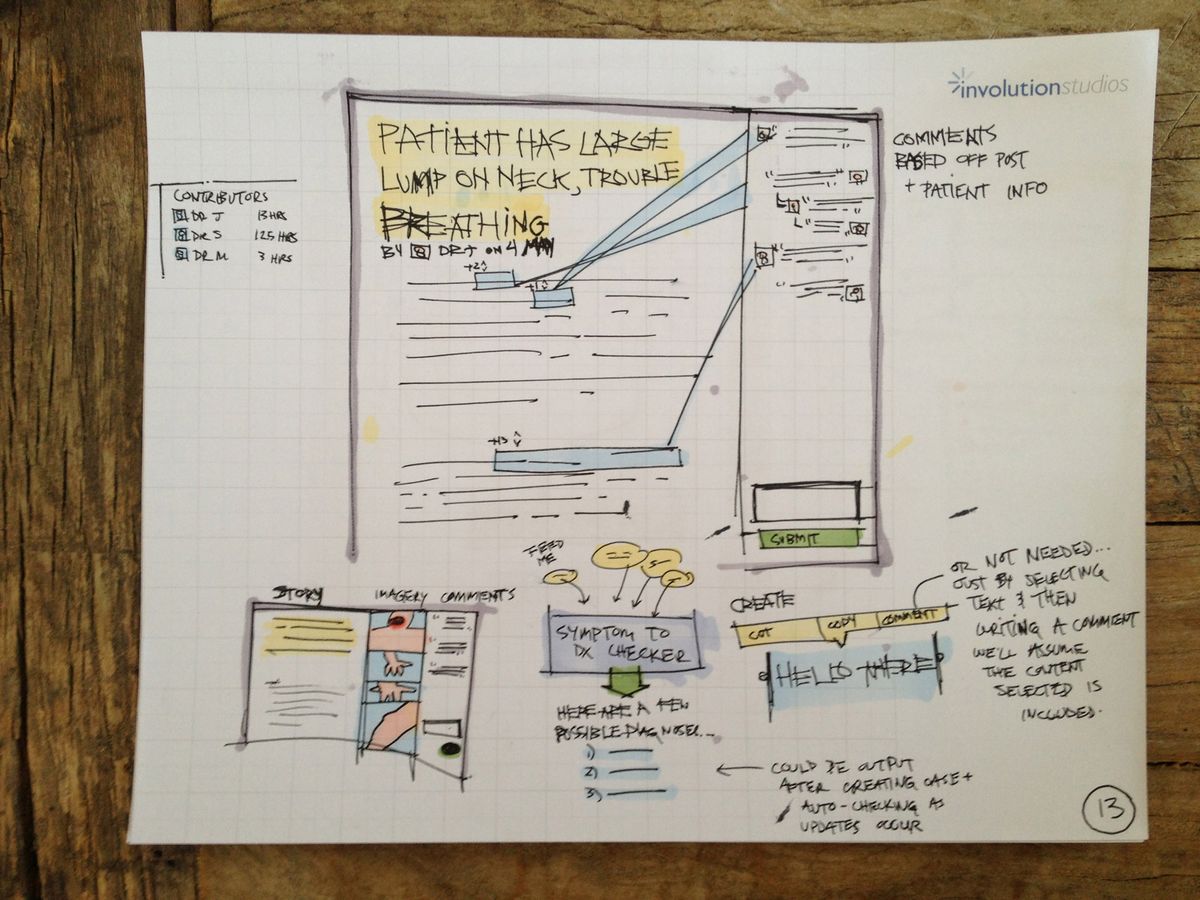 involutionstudios
PATIENT HAS LARGE
LUMP ON NECK, TROUBLE
BREATHING
BY DR J ON 4 MAY
COMMENTS
BASED OFF POST
+ PATIENT INFO
CONTRIBUTORS
DR J 13 HRS
DR S 12.5 HRS
DR M 3 HRS
+2
+1
+13
SUBMIT
STORY
IMAGERY
COMMENTS
FEED
ME
SYMPTOM TO
DX CHECKER
HERE ARE A FEW
POSSIBLE DIAGNOSES...
1)
2)
3)
COULD BE OUTPUT
AFTER CREATING CASE +
AUTO-CHECKING AS
UPDATES OCCUR
CREATE
CUT
COPY
COMMENT
HELLO THERE
OR NOT NEEDED...
JUST BY SELECTING
TEXT & THEN
WRITING A COMMENT
WE'LL ASSUME
THE CONTENT
SELECTED IS
INCLUDED.
13